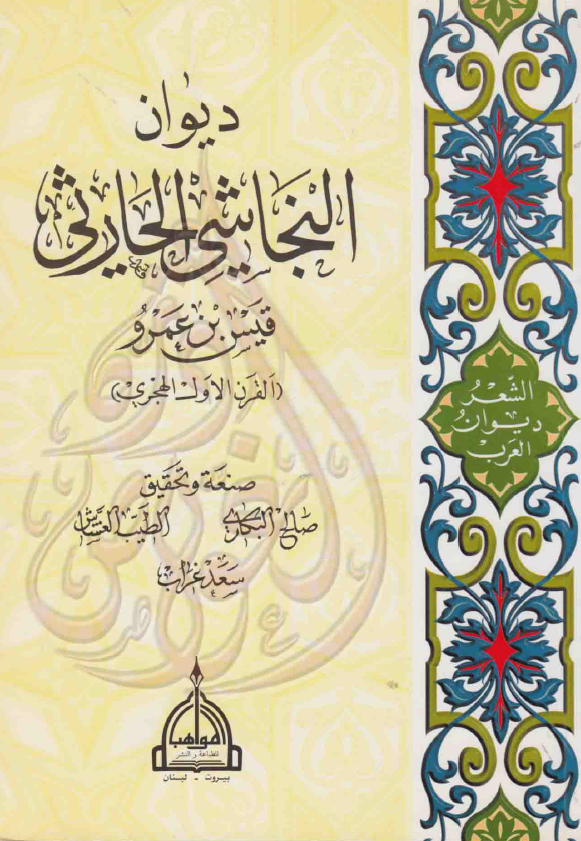 ديوان
النجاشي الحارثي
قيس بن عمرو
(القرن الأول الهجري)
صنعة وتحقيق
صالح البكاري الطيب العشاش
سعد غراب
الشعر
ديوان
العرب
مواهب
للطباعة والنشر
بيروت - لبنان